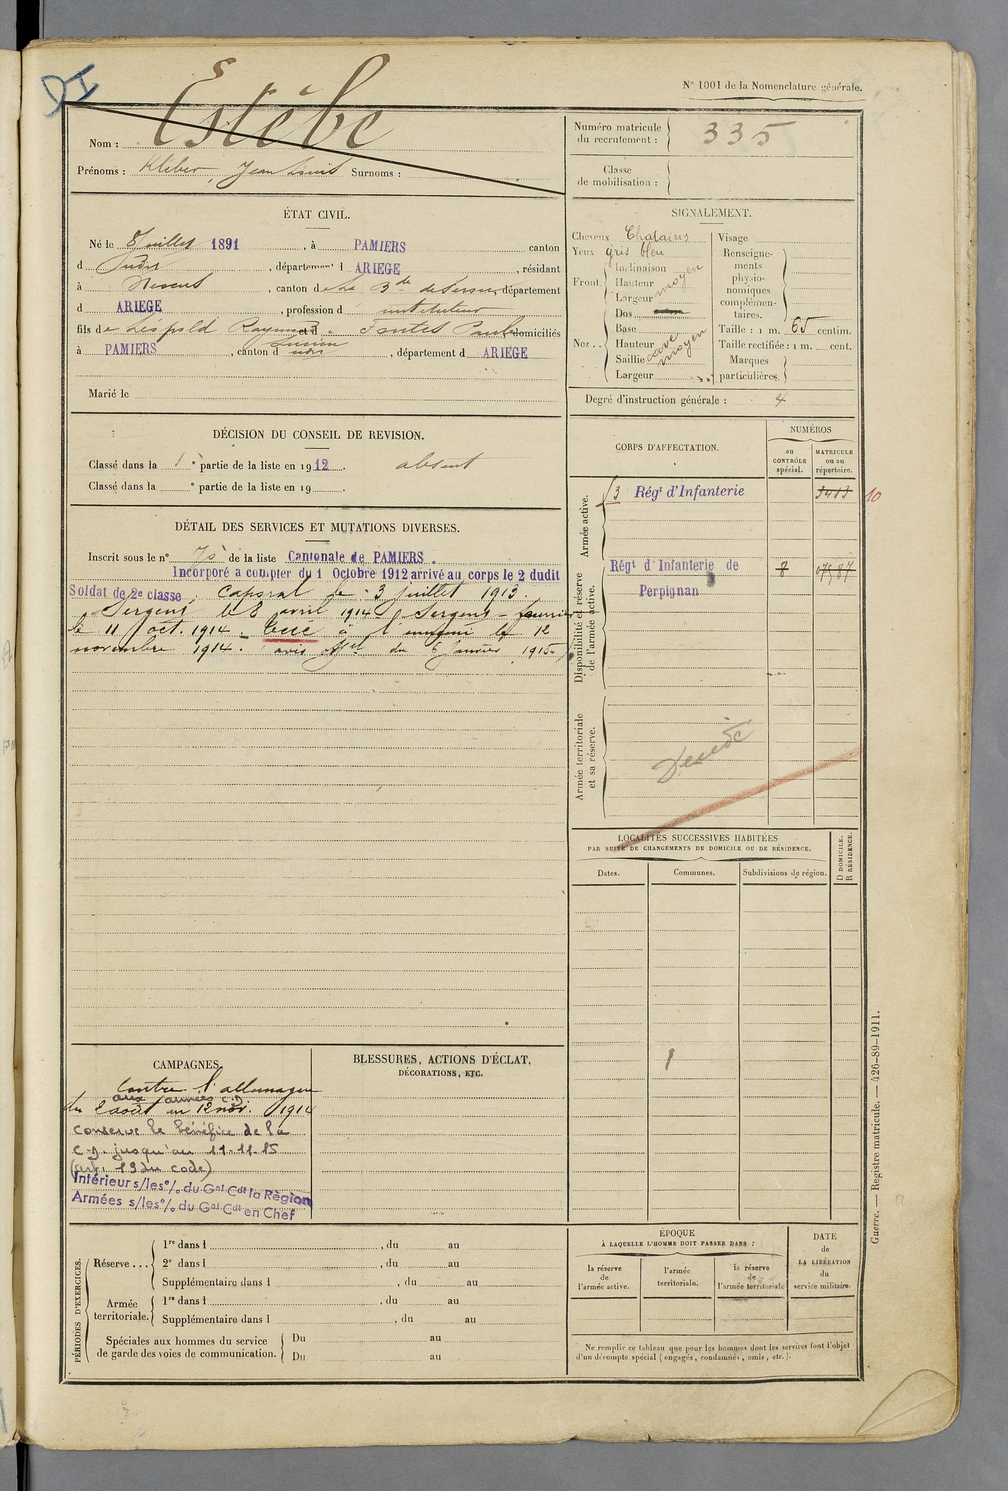 DI
N° 1001 de la Nomenclature générale.
Nom : Estèbe
Prénoms : Kléber, Jean Louis Surnoms :
Numéro matricule du recrutement : 335
Classe de mobilisation :
ÉTAT CIVIL.
Né le 8 juillet 1891, à PAMIERS canton
d dudit, département d ARIEGE, résidant
à Nescus, canton de La Bde de Serou, département
d ARIEGE, profession d instituteur
fils de Léopold Raymond et d Pauline domiciliés
à PAMIERS, canton d dudit, département d ARIEGE
Marié le
SIGNALEMENT.
Cheveux Chatains
Yeux gris bleu
Front. Inclinaison
Hauteur moyen
Largeur
Nez.. Dos
Base
Hauteur cave
Saillie moyen
Largeur
Visage
Renseignements physionomiques complémentaires.
Taille : 1 m. 65 centim.
Taille rectifiée : 1 m. cent.
Marques particulières.
Degré d'instruction générale : 4
DÉCISION DU CONSEIL DE REVISION.
Classé dans la 1e partie de la liste en 1912. absent
Classé dans la e partie de la liste en 19 .
DÉTAIL DES SERVICES ET MUTATIONS DIVERSES.
Inscrit sous le n° 75 de la liste Cantonale de PAMIERS.
Incorporé a compter du 1 Octobre 1912 arrivé au corps le 2 dudit
Soldat de 2e classe. Caporal le 3 juillet 1913.
Sergent le 8 avril 1914. Sergent fourrier
le 11 oct. 1914. Tué à l'ennemi le 12
novembre 1914. avis offel du 6 janvier 1915.
CORPS D'AFFECTATION.
NUMÉROS
au CONTRÔLE spécial.
MATRICULE ou au répertoire.
Armée active.
53 Régt d'Infanterie 3483 10
Disponibilité et réserve de l'armée active.
Régt d'Infanterie de
Perpignan
Armée territoriale et sa réserve.
Décédé
LOCALITÉS SUCCESSIVES HABITÉES
PAR SUITE DE CHANGEMENTS DE DOMICILE OU DE RÉSIDENCE.
Dates. Communes. Subdivisions de région. D DOMICILE. R RÉSIDENCE.
CAMPAGNES.
Contre l'allemagne
aux armées C.D.
du 2 août au 12 nov. 1914
Conserve le bénéfice de la
C.D. jusqu'au 11-11-15
(art. 19 du code)
Intérieur s/les o/o du Gal Cdt la Région
Armées s/les o/o du Gal Cdt en Chef
BLESSURES, ACTIONS D'ÉCLAT,
DÉCORATIONS, ETC.
PÉRIODES D'EXERCICES.
Réserve... 1re dans l , du au
2e dans l , du au
Supplémentaire dans l , du au
Armée territoriale. 1re dans l , du au
Supplémentaire dans l , du au
Spéciales aux hommes du service de garde des voies de communication. Du au
Du au
ÉPOQUE
À LAQUELLE L'HOMME DOIT PASSER DANS :
la réserve de l'armée active.
l'armée territoriale.
la réserve de l'armée territoriale
DATE de LA LIBÉRATION du service militaire.
Ne remplir ce tableau que pour les hommes dont les services font l'objet
d'un décompte spécial (engagés, condamnés, omis, etc.).
Guerre. — Registre matricule. — 426-89-1911.